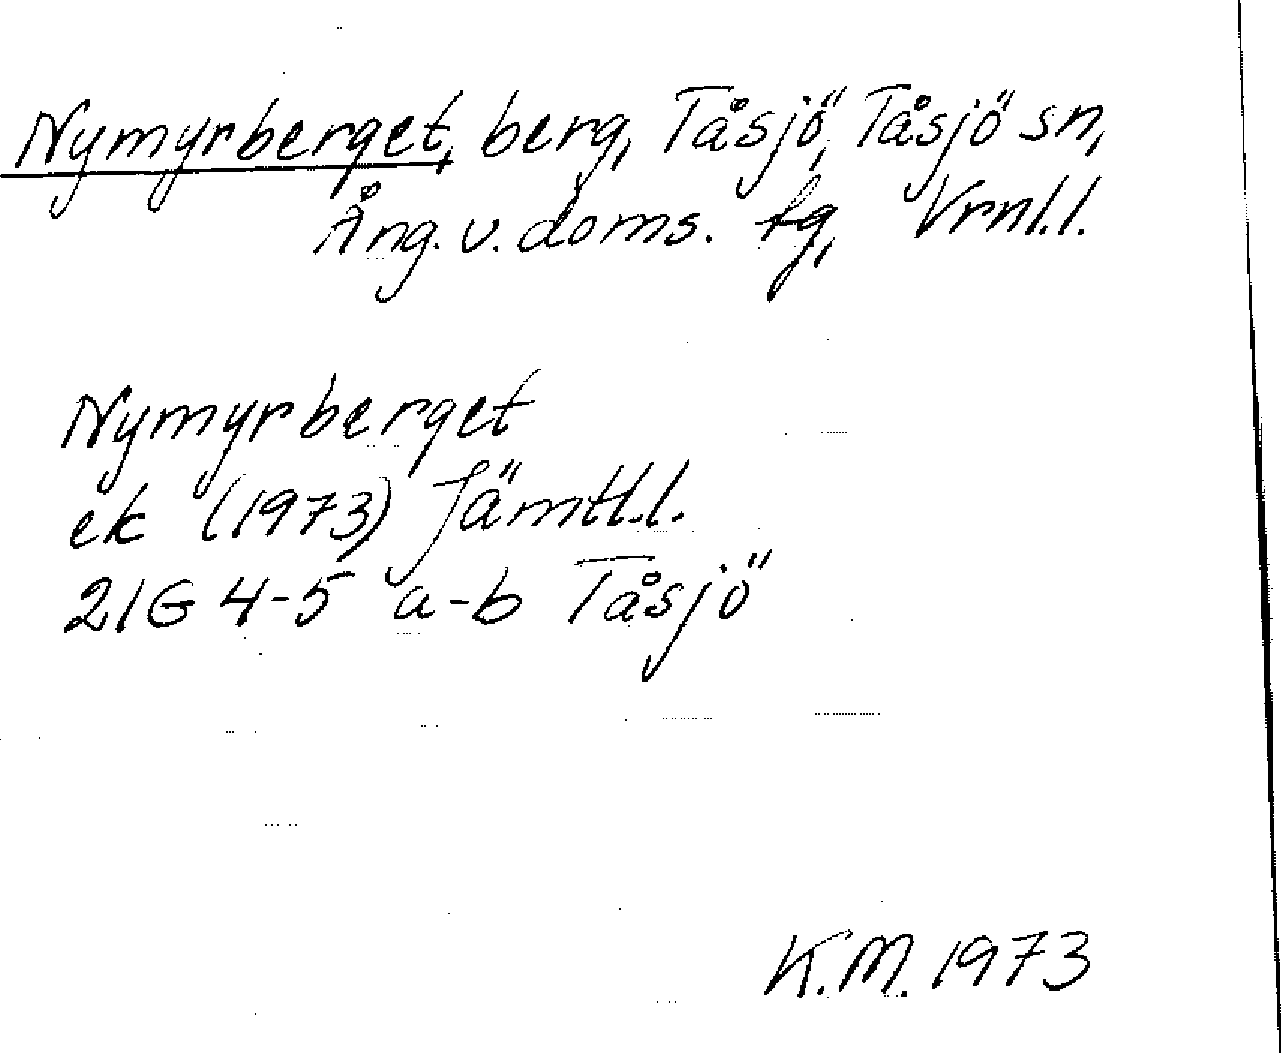 Nymyrberget, berg, Tåsjö, Tåsjö sn,
Ång. v. doms. tg, Vrnl.l.
Nymyrberget
ek (1973) Jämtl.l.
21G 4-5 a-b Tåsjö
K.M. 1973